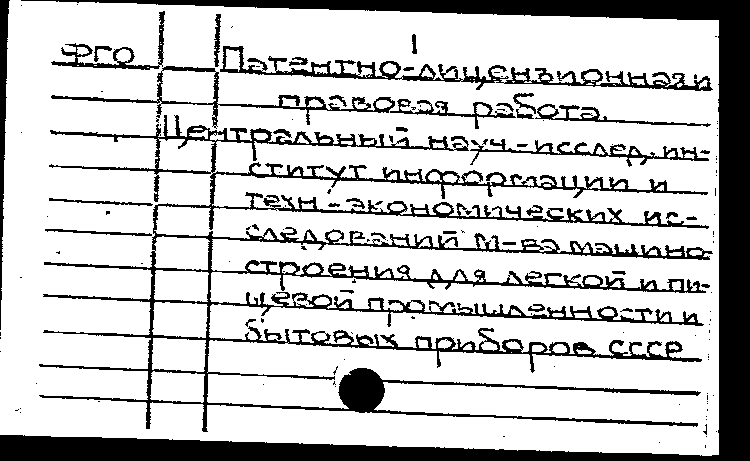 ФГО Патентно-лицензионная и
правовая работа.
Центральный науч.-исслед. ин-
ститут информации и
техн-экономических ис-
следований М-ва машино-
строения для легкой и пи-
щевой промышленности и
бытовых приборов СССР